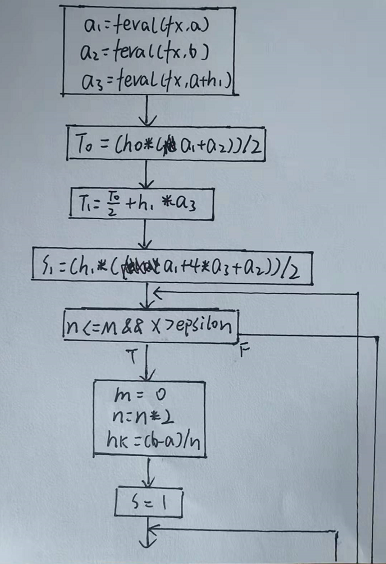 a₁=feval(fx,a)
a₂=feval(fx,b)
a₃=feval(fx,a+h₁)
T₀=(h0*(a₁+a₂))/2
T₁=T₀/2+h₁*a₃
S₁=(h₁*(a₁+4*a₃+a₂))/2
n<=M&&x>epsilon
T
F
m=0
n=n*2
hk=(b-a)/n
S=1